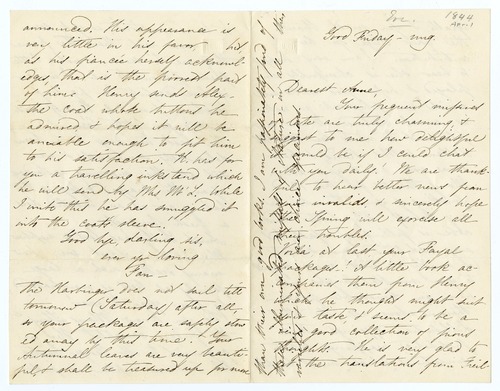 announced. His appearance is
very little in his favor but
as his fiancée herself acknowl-
edges, that is the poorest part
of him. Henry sends Alex
the coat whose buttons he
admired, & hopes it will be
amiable enough to fit him
to his satisfaction. He has for
you a travelling inkstand which
he will send by Mrs W L. While
I write this he has smuggled it
into the coat sleeve.
Good bye, darling sis,
ever yr loving
Fan —
The Harbinger does not sail till
tomorrow (Saturday) after all,
so your packages are safely stow
ed away by this time. Your
Autumnal leaves are very beauti-
ful & shall be treasured up for more
than their own good looks. I am passionately fond of
1844
April
Good Friday — mg.
Dearest Anne,
Your frequent
of late are truly charming, &
to me how delightful
would be if I could chat
with you daily! We are thank-
ful to hear better news from
invalids, & sincerely hope
the Spring will exorcise all
their troubles.
Voilà at last your Fayal
packages! A little book ac-
companies them from Henry
which he thought might suit
your taste & seems to be a
good collection of pious
thoughts. He is very glad to
the translations from